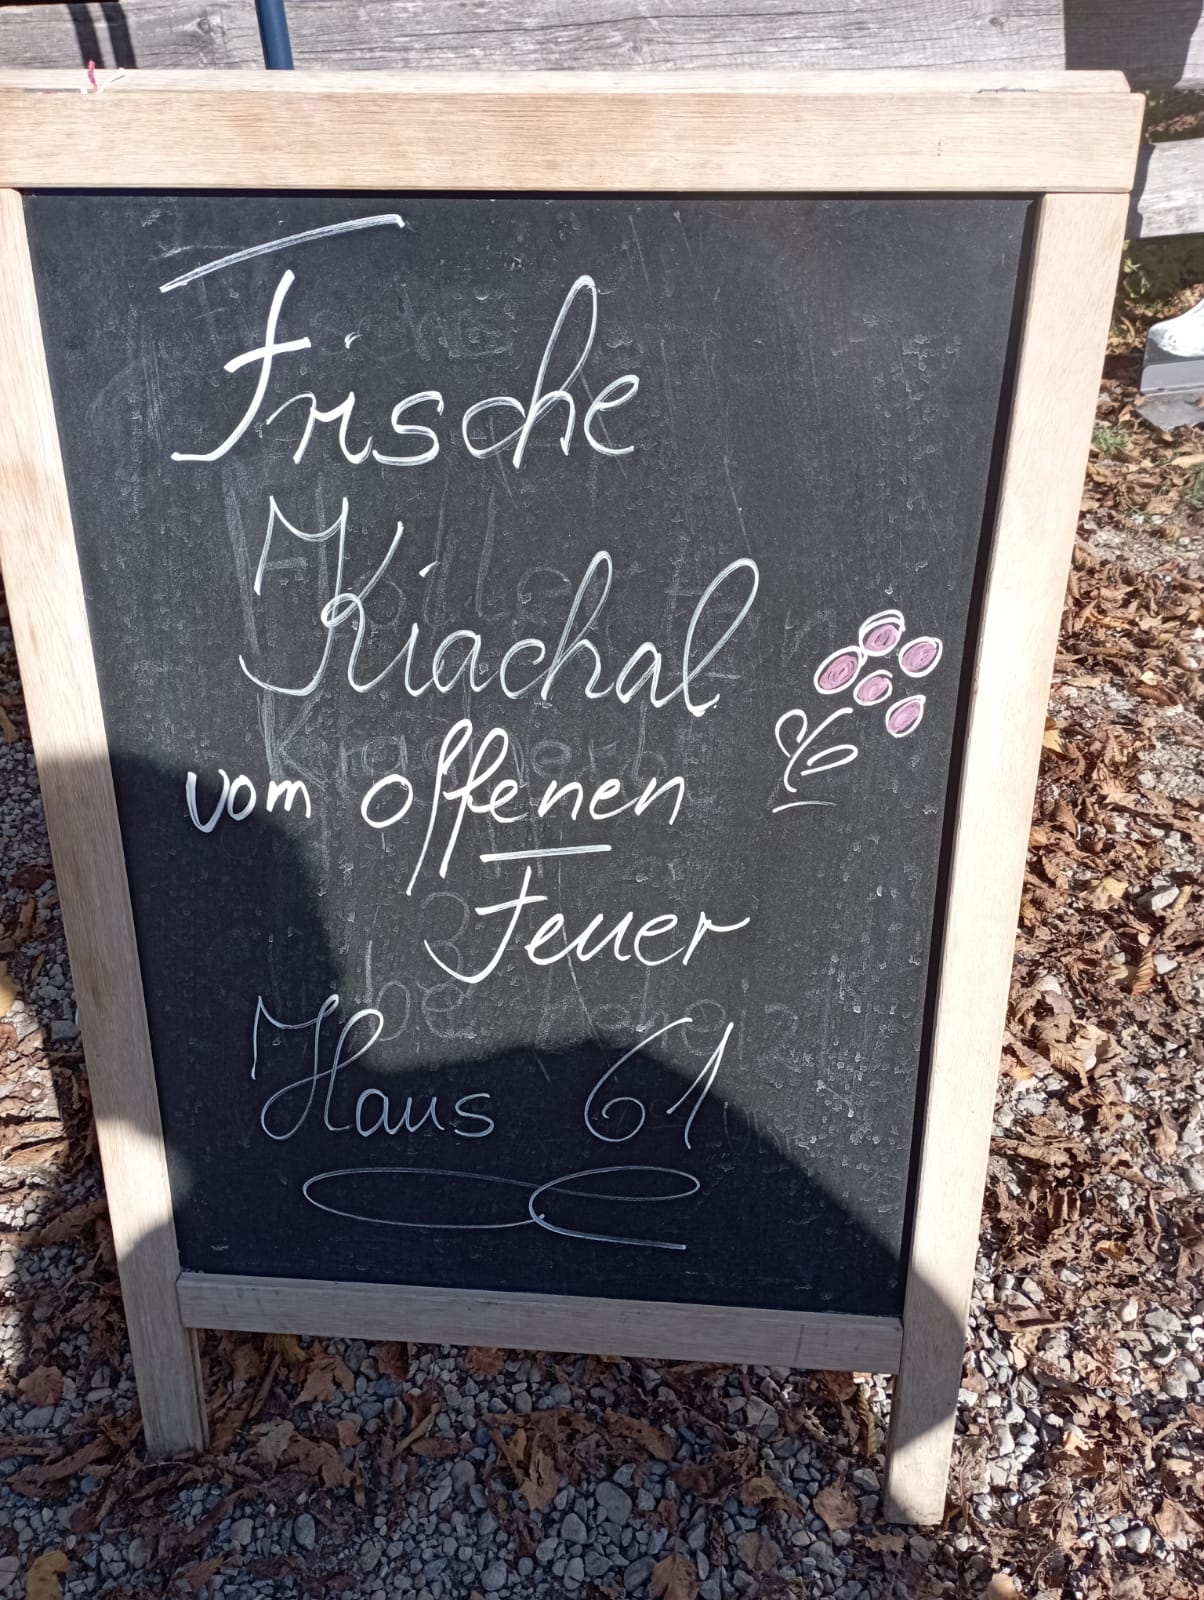 Frische
Kiachal
vom offenen
Feuer
Haus 61